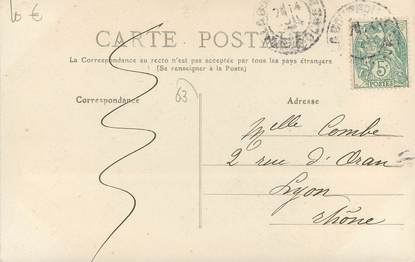 10 €
CARTE POSTALE
La Correspondance au recto n'est pas acceptée par tous les pays étrangers
(Se renseigner à la Poste)
Correspondance
63
Adresse
Melle Combe
2 rue d'Oran
Lyon
Rhône
5c
POSTES